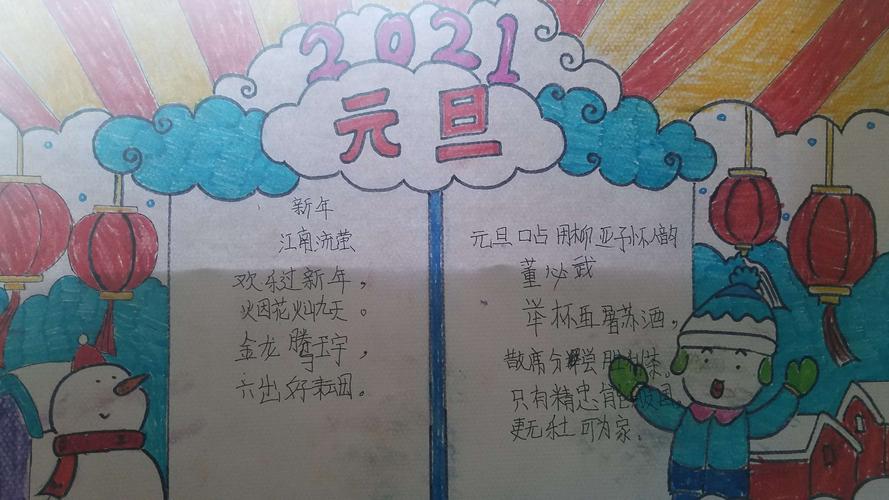 2021
元旦
新年
江南流萤
欢乐过新年，
烟花灿九天。
金龙腾玉宇，
六出好耘田。
元旦口占用柳亚子怀人韵
董必武
举杯互屠苏酒，
散席分尝胜利茶。
只有精忠能报国
更无乐土可为家.